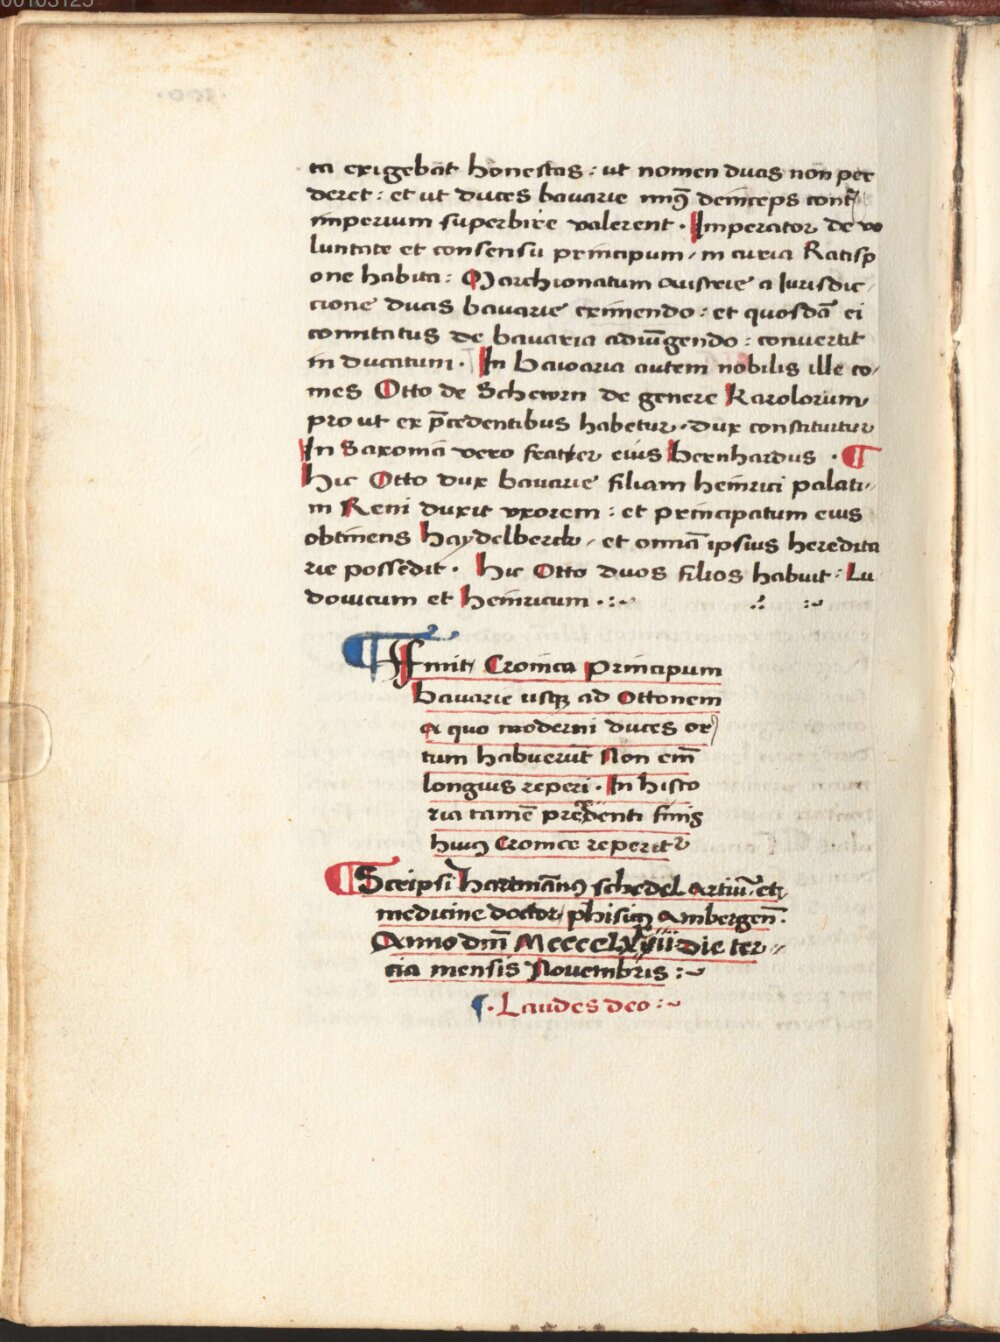 00103125
·100·
ta exigebāt honestas : ut nomen ducis non per
deret : et ut duces bavarie nimiū deinceps contᷓ
imperium superbire valerent · Imperator de vo
luntate et consensu principum / in curia Ratisp
one habita : Marchionatum austrie a Iurisdic-
cione ducis bavarie eximendo : et quosdā ei
comitatus de bavaria adiūgendo : convertit
in ducatum · In bavoaria autem nobilis ille co-
mes Otto de Scheiorn de genere Karolorum
pro ut ex p̄cedentibus habetur · dux constituitur
In Saxonia vero frater eius Bernhardus · ¶
Hic Otto dux bavarie filiam heinrici palati-
ni Reni duxit vxorem : et principatum eius
obtinens Haydelberck / et omnia ipsius heredita
rie possedit · Hic Otto duos filios habuit : Lu
dovicum et Heinricum · : ~ ·: : ~
¶ Finit Cronica Principum
bavarie usqꝫ ad Ottonem
a quo moderni duces or
tum habuerūt Non em̄
longius reperi · In histo
ria tamē precedenti finis
huius Cronice reperitr
¶ Scripsi Hartmānus schedel artiū et
medicine doctor / phisicus Ambergen̄ ·
Anno dn̄i Mcccclxxiii die ter-
cia mensis Novembris : ~
¶ · Laudes deo : ~